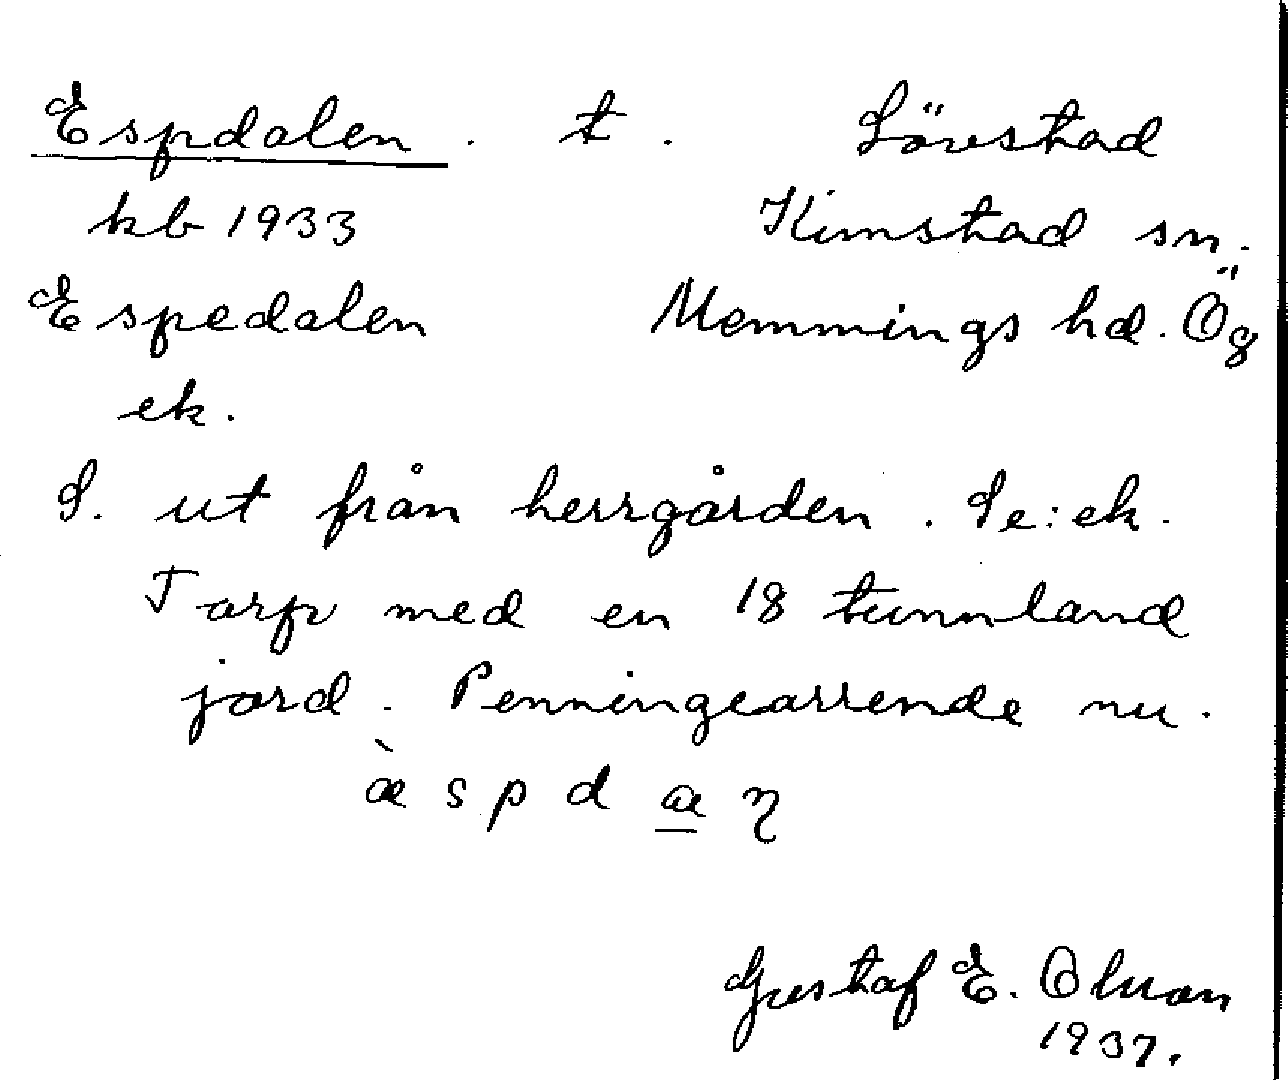 Espdalen. t. Lövstad
kb 1933 Kimstad sn.
Espedalen Memmings hd. Ög
ek.
S. ut från herrgården. Se: ek.
Torp med en 18 tunnland
jord. Penningearrende nu.
æ̀ s p d a̲ η
Gustaf E. Olsson
1937.